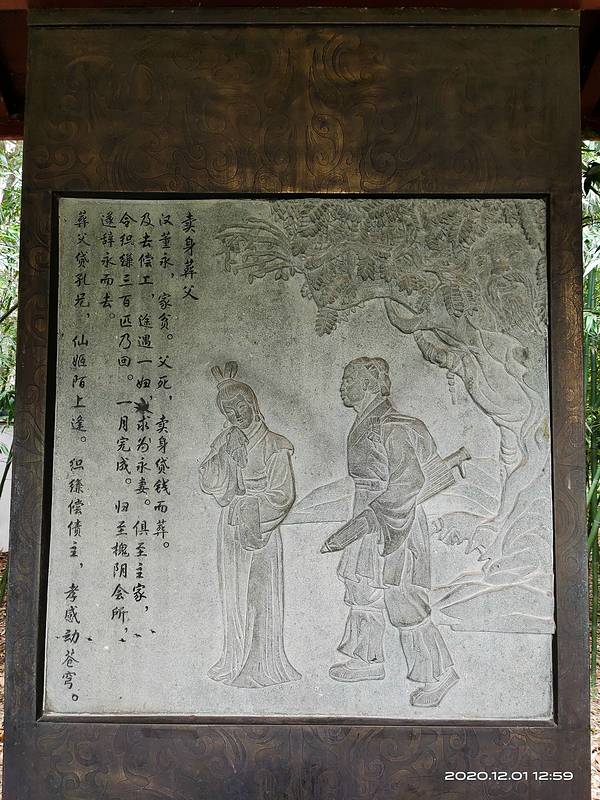 卖身葬父
汉董永，家贫。父死，卖身贷钱而葬。
及去偿工，途遇一妇，求为永妻。俱至主家，
令织缣三百匹乃回。一月完成。归至槐阴会所，
遂辞永而去。
葬父贷孔兄，仙姬陌上逢。织缣偿债主，孝感动苍穹。
2020.12.01 12:59